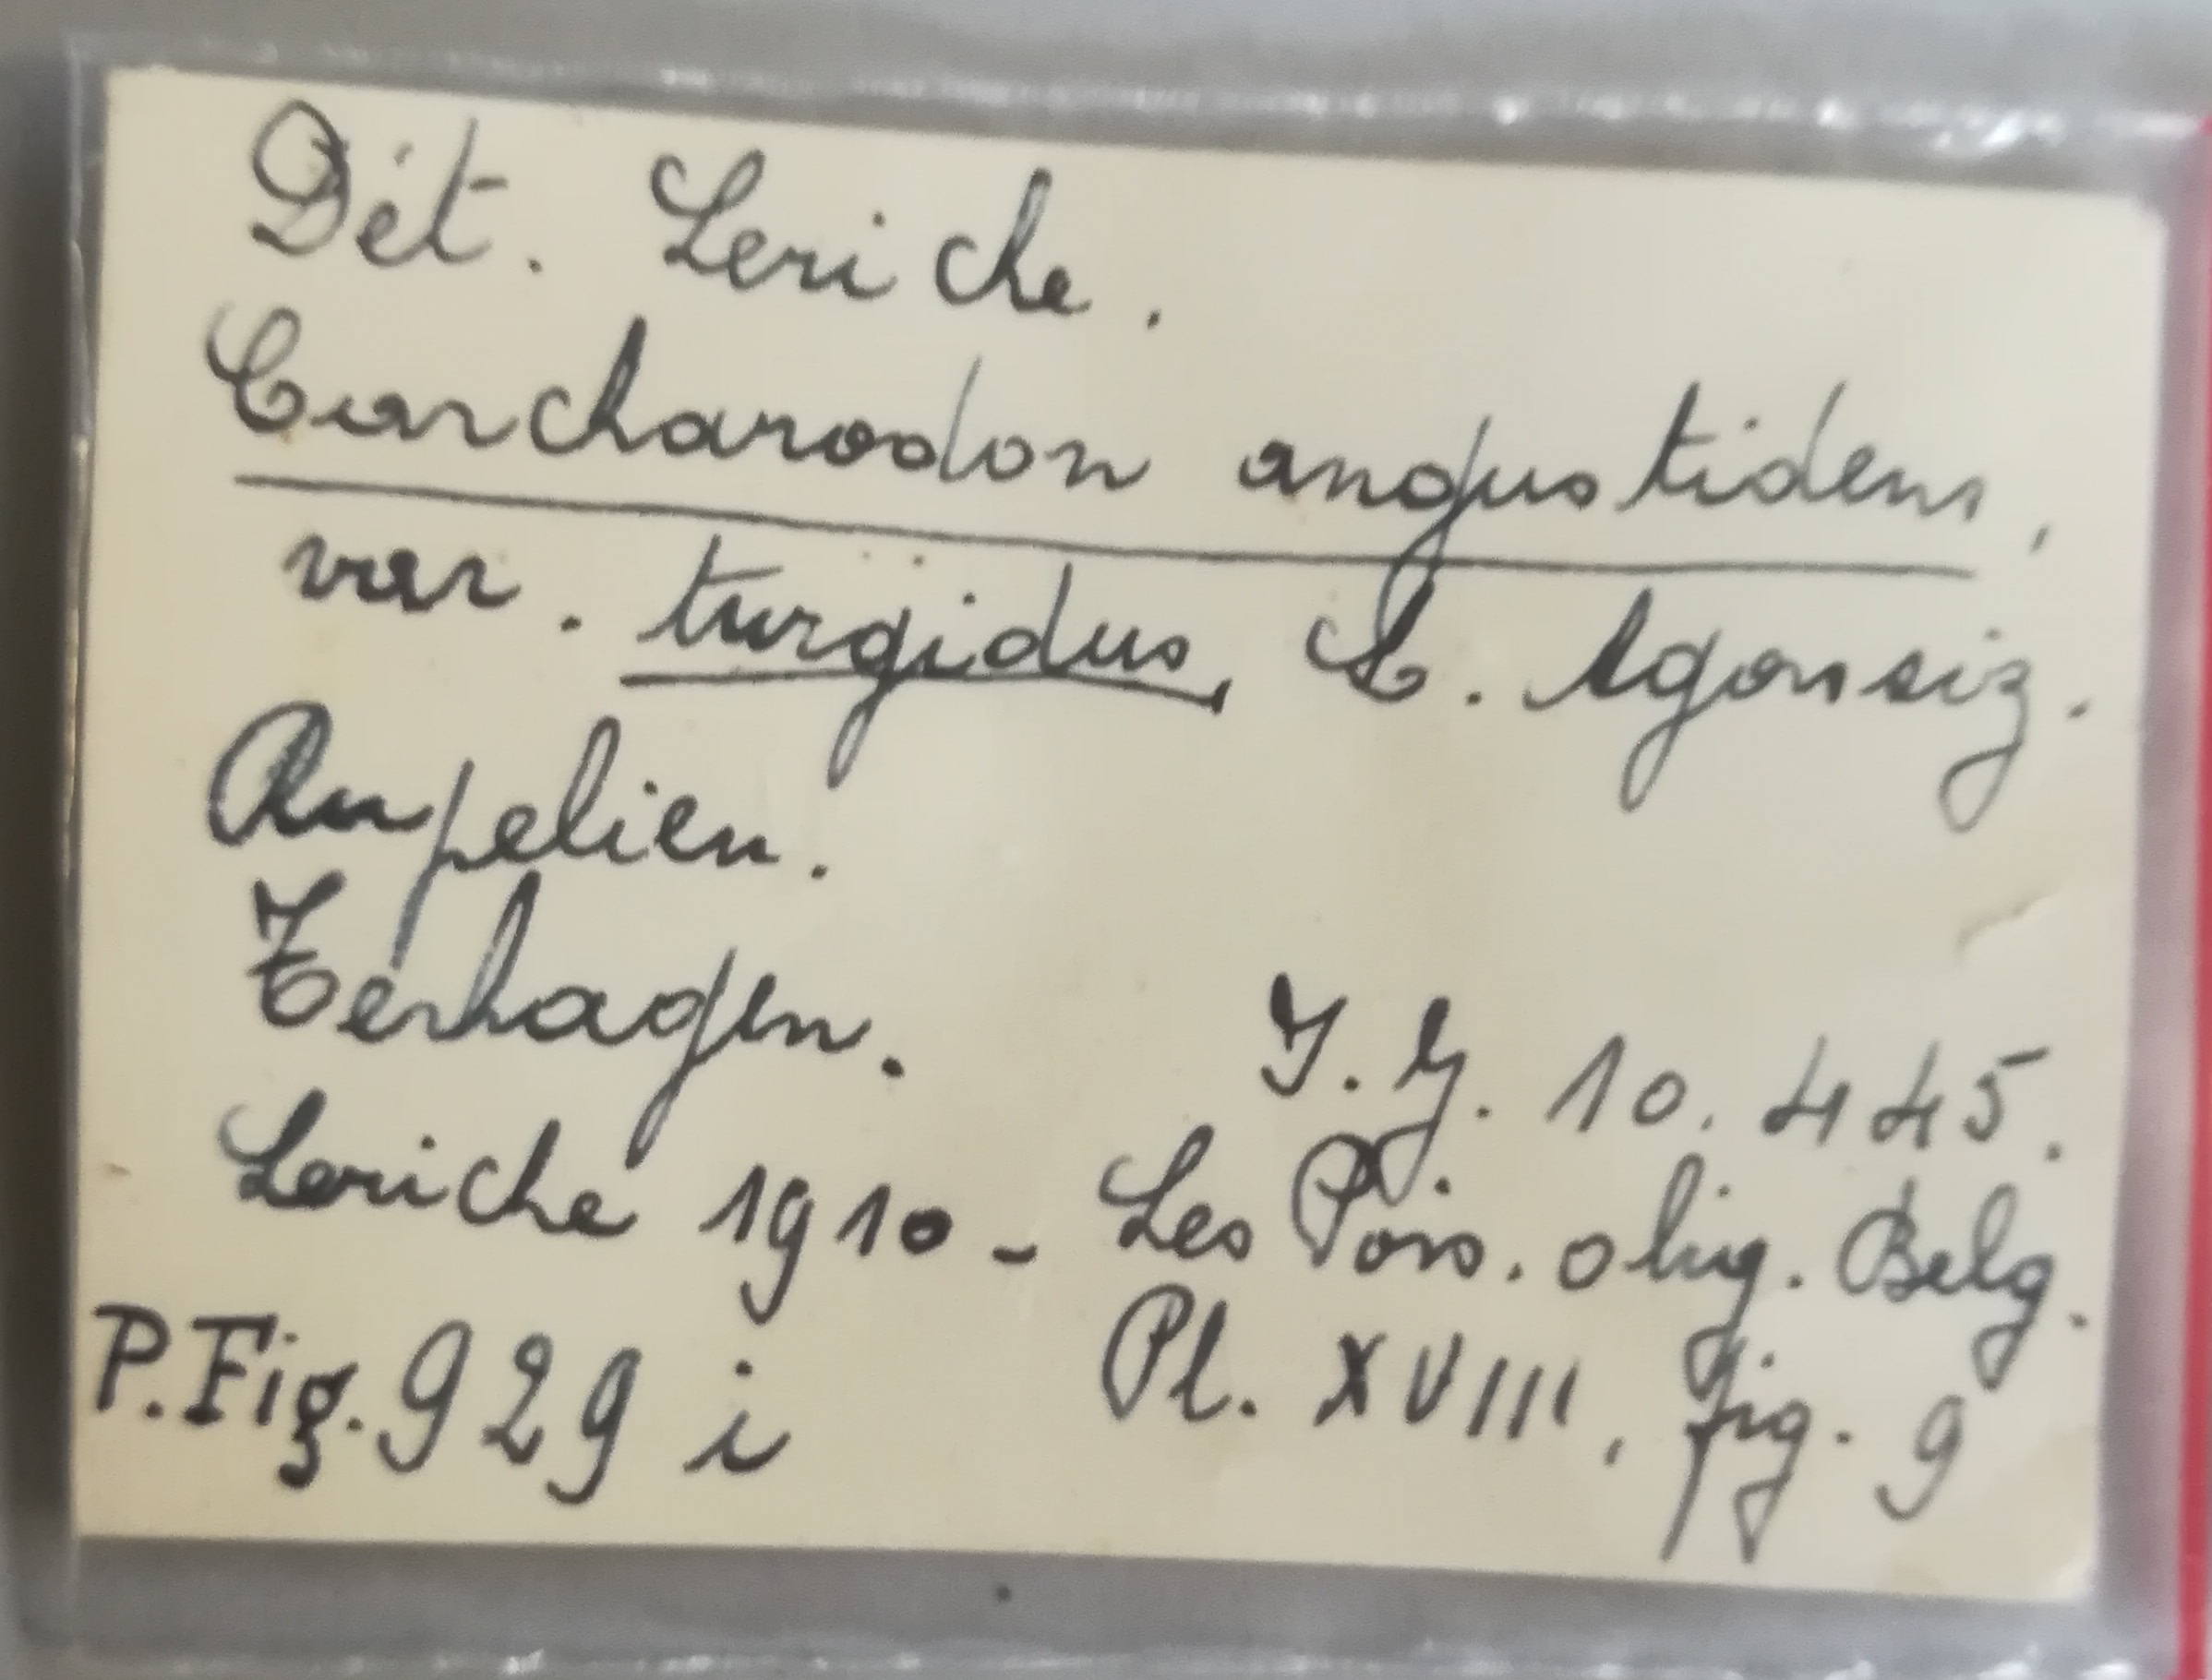 Dét. Leriche.
Carcharodon angustidens,
var. turgidus, L. Agassiz.
Rupelien.
Terhagen.
I.G. 10.445.
Leriche 1910 - Les Pois. olig. Belg.
Pl. XVIII, fig. 9
P.Fig. 929 i